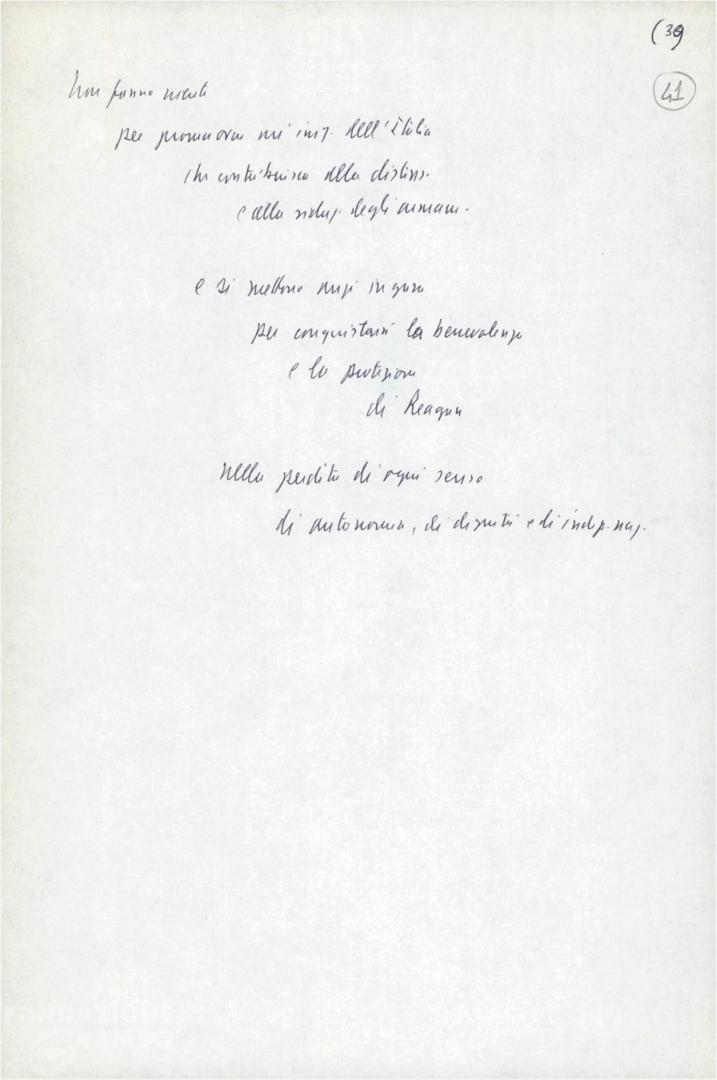 (39)
41
Non fanno niente
per promuovere un'iniz. dell'Italia
che contribuisca alla distens.
e alla riduz. degli armam.
e si mettono anzi in gara
per conquistarsi la benevolenza
e la protezione
di Reagan
nella perdita di ogni senso
di autonomia, di dignità e di indipenz.